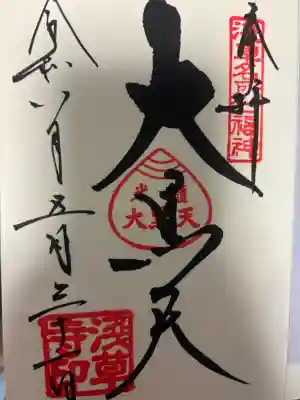 奉拝
浅草名所七福神
大黒天
大黒天
令和八年五月三十一日
淺草
寺印